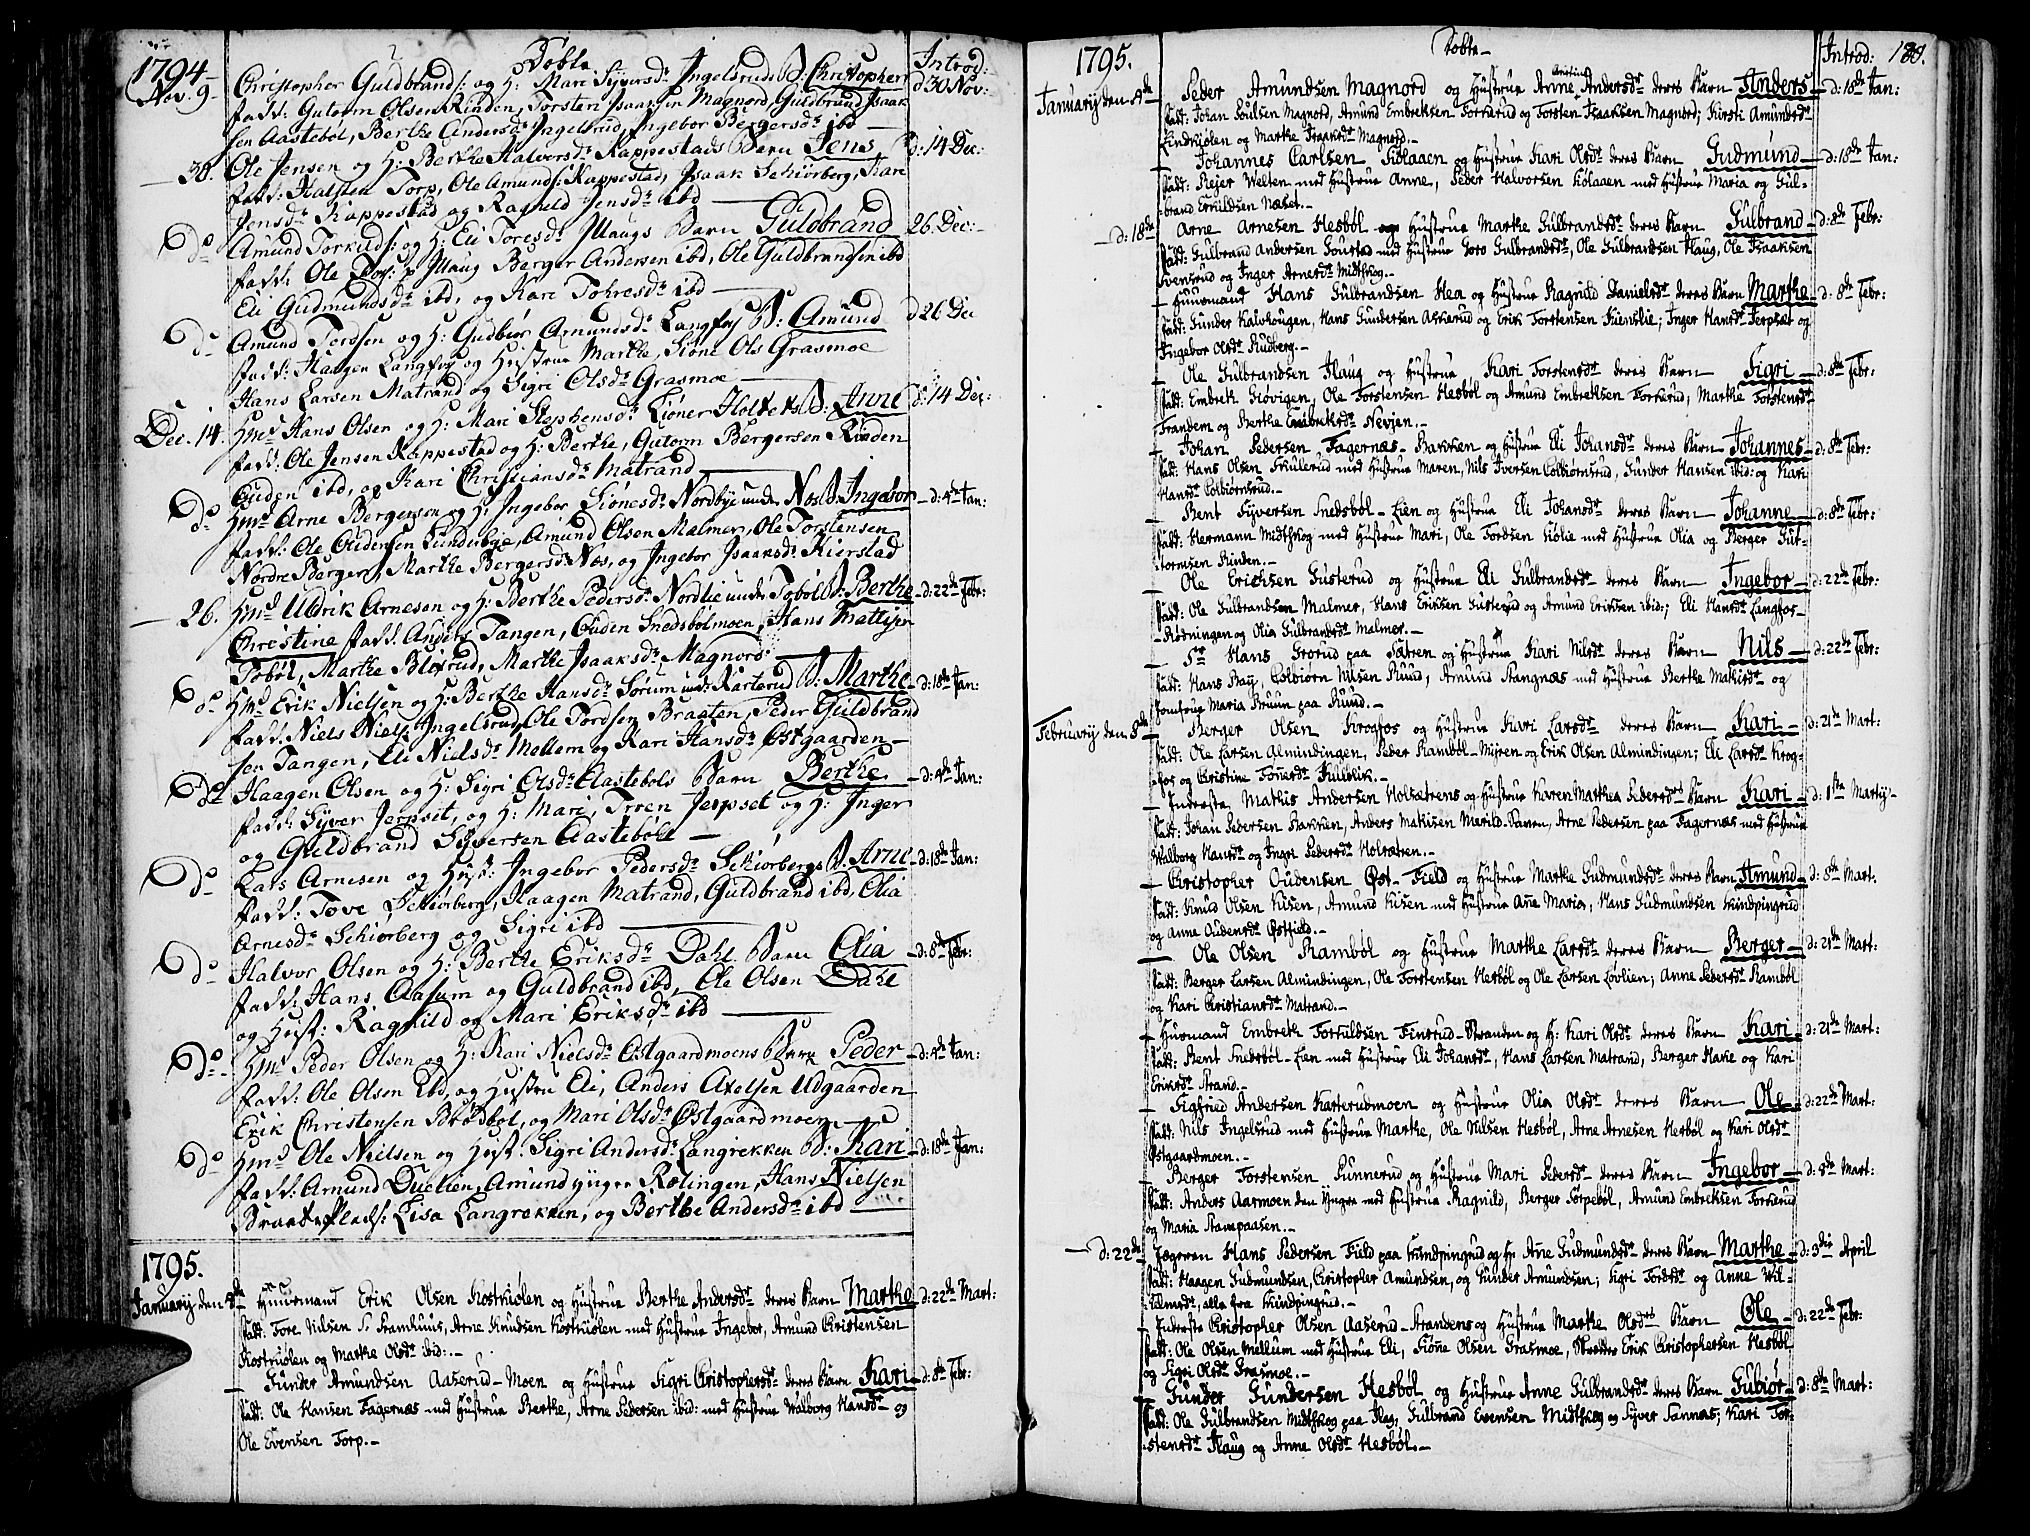 1794
Döbte
Introd:
Nov. 9 Christopher Guldbrands: og H: Mari Syversd: Ingelsruds B: Christopher d 30 Nov:
fadd: Gutorm Olsen Rinden, Torsten Isaachsen Magnord, Guldbrand Isaak
sen Aastebøl, Berthe Andersd: Ingelsrud, Ingebor Bergersd: ibd
30. Ole Jensen og H: Berthe Halvorsd: Kappestads Barn Jens d: 14 Dec:
fadd: Halsten Torp, Ole Amunds: Kappestad, Isaak Schiørberg, Kari
Jensd: Kappestad og Ragnild Jensd: ibd
do Amund Torkilds: og H: Eli Toresd: Illaugs Barn Güldbrand 26 Dec:
fadd: Ole Illaug Berger Andersen ibd, Ole Guldbrandsen ibd
Eli Gudmundsd: ibd, og Kari Tohresd: ibd
do Amund Tordsen og H: Gudbiør Amundsd: Langfos B: Amund d 26 Dec
fadd: Haagen Langfos og Hustrue Marthe, Siøne Ols Grasmoe
Hans Larsen Matrand og Sigri Olsd: Grasmoe
Dec. 14. Hmd Hans Olsen og H: Mari Stephensd: B: Anne d: 14 Dec:
fadd: Ole Jensen Kappestad og H: Berthe, Gutorm Bergersen Rinden
Ouden ibd, og Kari Christiansd: Matrand
do Hmd Arne Bergersen og H: Ingebor Siönesd: Nordbye under Nos B. Ingebor d: 4de Jan:
fadd: Ole Oudensen Lundebye, Amund Olsen Malmer, Ole Torstensen
Nordre Berger, Marthe Bergersd: Næs, og Ingebor Isaaksd: Kierstad
26. Hmd Uldrik Arnesen og H: Berthe Pedersd: Nordlie under Tobøl B: Berthe d: 22de Febr:
Christine fadd: Anders Tangen, Ouden Snedsbølmoen, Hans Mattisen
Tobøl, Marthe Bløxrud, Marthe Isaaksd: Magnord
do Hmd Erik Nielsen og H: Berthe Hansd: Sorum und: Karterud B: Marthe d: 18de Jan:
fadd: Niels Niels: Ingelsrud, Ole Tordsen Braaten, Peder Guldbrand
sen Tangen, Eli Nielsd: Mellem og Kari Hansd: Østgaarden
do Haagen Olsen og H: Sigri Olsd: Aastebøls Barn Berthe d: 4de Jan:
fadd: Syver Jerpset, og H: Mari, Troen Jerpset og H: Inger
og Guldbrand Syversen Aastebøle
do Lars Arnesen og Hust: Ingebor Pedersd: Schiorbergs B. Arne d: 18de Jan:
fadd: Tove Schiørberg, Haagen Matrand, Guldbrand ibd, Olia
Arnesd: Schiorberg og Sigri ibd
do Halvor Olsen og H: Berthe Eriksd: Dahl Barn Olia d: 8de Febr:
fadd: Hans Aasum og Guldbrand ibd, Ole Olsen Dahl
og Hust: Ragnild og Mari Eriksd: ibd
do Hmd Peder Olsen og H: Kari Nielsd: Østgaardmoens Barn Peder d: 4de Jan:
fadd: Ole Olsen Ebd, og Hustru Eli, Anders Axelsen Udgaarden
Erik Christensen Brødbøl, og Mari Olsd: Østgaardmoen
do Hmd Ole Nielsen og Hust: Sigri Andersd: Langrekken B: Kari d: 18de Jan:
fadd: Amund Duelien, Amund yngre Rolingen, Hans Nielsen
Lisa Langrekken, og Berthe Andersd: ibd
1795.
January den 4de Huusmand Erik Olsen Kostkiølen og Hustrue Berthe Andersdt deres Barn Marthe d: 22de Mart:
Fadd: Tore Nilsen Framhuus, Arne Knudsen Kostkiølen med Hustrue Ingebor, Amund Christensen
Kostkiølen og Marthe Olsdt ibid:
Gunder Amundsen Aaserud-Moen og Hustrue Sigri Christophersdt deres Barn Kari d: 8de Febr:
Fadd: Ole Hansen Fagernæs med Hustrue Berthe, Arne Pedersen ibid: med Hustrue Walborg Hansdt og
Ole Evensen Torp.
1795.
Döbte
Introd:
180.
January den 4de Peder Amundsen Magnord og Hustrue Anne Christine Andersdt deres Barn Anders d: 18de Jan:
Fadd: Johan Poulsen Magnord, Amund Embretsen Torkerud og Torsten Isaaksen Magnord; Kirsti Amundsdt
Lindkiølen og Marthe Isaaksdt Magnord.
Johannes Carlsen Kiölaaen og Hustrue Kari Olsdt deres Barn Gudmund d: 18de Jan:
Fadd: Rejer Welten med Hustrue Anne, Peder Halvorsen Kölaaen med Hustrue Maria og Gul-
brand Erikldsen Næset.
d: 18de Arne Arnesen Hesböl og Hustrue Marthe Gulbrandsdt deres Barn Gulbrand d: 8de Febr:
Fadd: Gulbrand Andersen Sourstad med Hustrue Goro Gulbrandsdt, Ole Gulbrandsen Haug, Ole Isaaksen
Svensrud og Inger Arnesdt Midtskog.
Huusmand Hans Gulbrandsen Hea og Hustrue Ragnild Danielsdt deres Barn Marthe d: 8de Febr:
Fadd: Gunder Kalvhougen, Hans Gundersen Askerud og Erik Torstensen Kienslie; Inger Hansdt Jerpset og
Ingebor Olsdt Rudberg.
Ole Gulbrandsen Haug og Hustrue Kari Torstensdt deres Barn Sigri d: 8de Febr:
Fadd: Embret Giövigen, Ole Torstensen Hesböl og Amund Embretsen Torkerud, Marthe Torstensdt
Trandem og Berthe Embretsdt Nevjen.
Johan Pedersen Fagernæs-Bakken og Hustrue Eli Johansdt deres Barn Johannes d: 8de Febr:
Fadd: Hans Olsen Skulerud med Hustrue Maren, Nils Iversen Colbiörnsrud, Gunder Hansen ibid: og Kari
Hansdt Colbiörnsrud.
Bent Syversen Snedsböl-Eien og Hustrue Eli Johansdt deres Barn Johanne d: 8de Febr:
Fadd: Hermann Midtskog med Hustrue Mari, Ole Tordsen Lidlie med Hustrue Olia og Berger Gut-
tormsen Rinden.
Ole Erichsen Gusterud og Hustrue Eli Gulbrandsdt deres Barn Ingebor d: 22de Febr:
Fadd: Ole Gulbrandsen Malmer, Hans Eriksen Gusterud og Amund Eriksen ibid:; Eli Hansdt Langfos-
Rödningen og Olia Gulbrandsdt Malmer.
Sr Hans Grorud paa Sætren og Hustrue Kari Nilsdt deres Barn Nils d: 22de Febr:
Fadd: Hans Bay, Colbiørn Nilsen Ruud, Amund Stangnæs med Hustrue Berthe Mathisdt og
Jomfrue Maria Bruun paa Ruud.
February den 8de Berger Olsen Krogfos og Hustrue Kari Larsdt deres Barn Kari d: 21de Mart:
Fadd: Ole Larsen Almindingen, Peder Ramböl-Myren og Erik Olsen Almindingen; Eli Larsdt Krog-
fos og Christine Tonersdt Kulblik.
Inderste Mathis Andersen Holsætrens og Hustrue Karen Marthea Pedersdts Barn Kari d: 1ste Martij
Fadd: Johan Pedersen Bakken, Anders Mathisen Merild-Tannen, Arne Pedersen paa Fagernæs med Hustrue
Walborg Hansdt og Inger Pedersdt Holsætren.
Christopher Oudensen Øst-Field og Hustrue Marthe Gudmundsdt deres Barn Amund d: 8de Mart:
Fadd: Knud Olsen Kisen, Amund Kisen med Hustrue Ane Maria, Hans Gudmundsen Skindpingrud
og Anne Oudensdt Østfield.
Ole Olsen Ramböl og Hustrue Marthe Larsdt deres Barn Berger d: 21de Mart:
Fadd: Berger Larsen Almindingen, Ole Torstensen Hesböl og Ole Larsen Lovlien; Anne Pedersdt Ramböl
og Kari Christiansdt Matrand.
Huusmand Embreth Torkildsen Finsrud-Stranden og H: Kari Olsdt deres Barn Kari d: 21de Mart:
Fadd: Bent Snedsböl-Eien med Hustrue Eli Johansdt, Hans Larsen Matrand, Berger Hane og Kari
Eriksdt Strand.
Sigfried Andersen Kasterudmoen og Hustrue Olia Olsdt deres Barn Ole d: 22de Mart:
Fadd: Nils Ingelsrud med Hustrue Marthe, Ole Nilsen Hesböl, Arne Arnesen Hesböl og Kari Olsdt
Østgaardmoen.
Berger Torstensen Sunnerud og Hustrue Mari Pedersdt deres Barn Ingebor d: 8de Mart:
Fadd: Anders Aarmoen den Yngre med Hustrue Ragnild, Berger Törpeböl, Amund Embretsen Torkerud
og Maria Stampaasen.
d: 22de Jægeren Hans Pedersen Field paa Skindpingrud og H: Ane Gudmundsdt deres Barn Marthe d: 3die April
Fadd: Haagen Gudmundsen, Christopher Amundsen, og Gunder Amundsen; Sigri Tordsdt og Anne Wil-
helmsdt, alle fra Skindpingrud.
Inderste Christopher Olsen Aaserud-Strandens og Hustrue Marthe Olsdts Barn Ole d: 22de Febr:
Fadd: Ole Olsen Mellum med Hustrue Eli, Siöne Olsen Grasmoe, Skredder Erik Christophersen Hesböl
og Sigri Olsdt Grasmoe.
Gunder Gundersen Hesböl og Hustrue Anne Gulbrandsdt deres Barn Gubiör d: 8de Mart:
Fadd: Ole Gulbrandsen Midtskog paa Haug, Gulbrand Evensen Midtskog og Syver Sannæs; Kari Tor-
stensdt Haug og Anne Olsdt Hesböl.